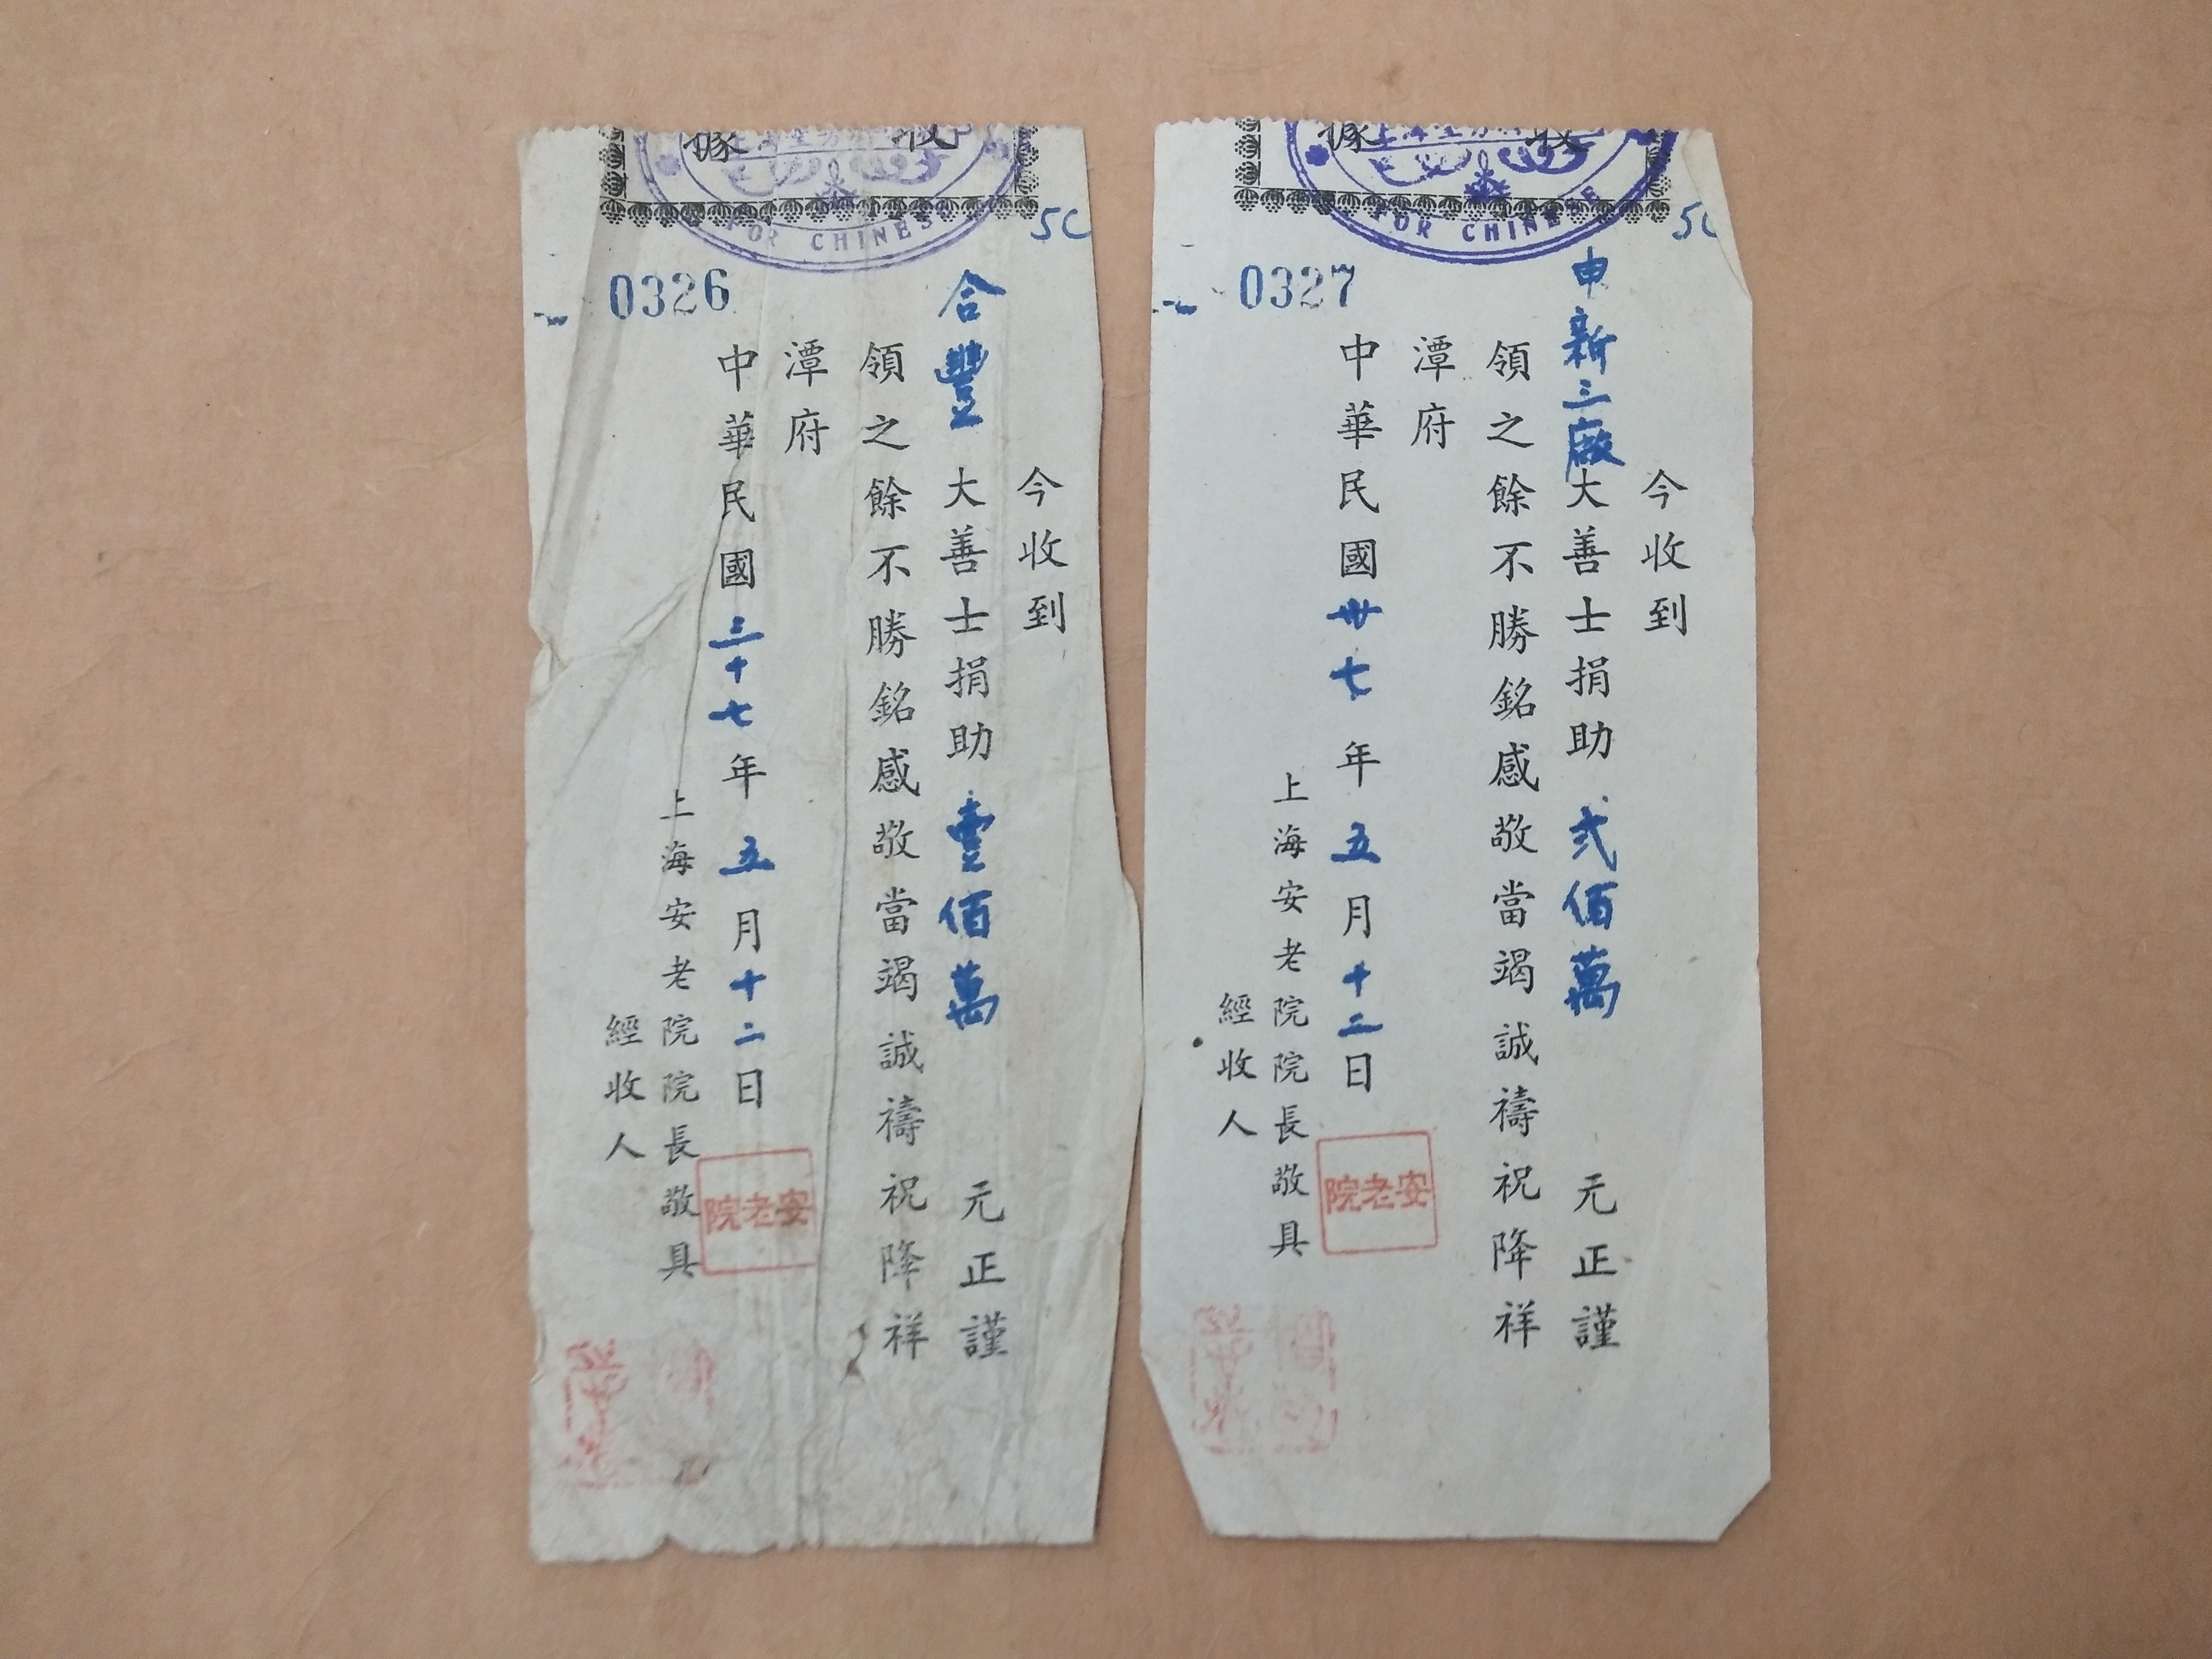 收據
FOR CHINESE
0326
今收到
合豐大善士捐助壹佰萬元正謹
領之餘不勝銘感敬當竭誠禱祝降祥
潭府
中華民國三十七年五月十二日
上海安老院院長敬具
經收人
安老院
收據
FOR CHINESE
0327
今收到
申新三廠大善士捐助弍佰萬元正謹
領之餘不勝銘感敬當竭誠禱祝降祥
潭府
中華民國卅七年五月十二日
上海安老院院長敬具
經收人
安老院